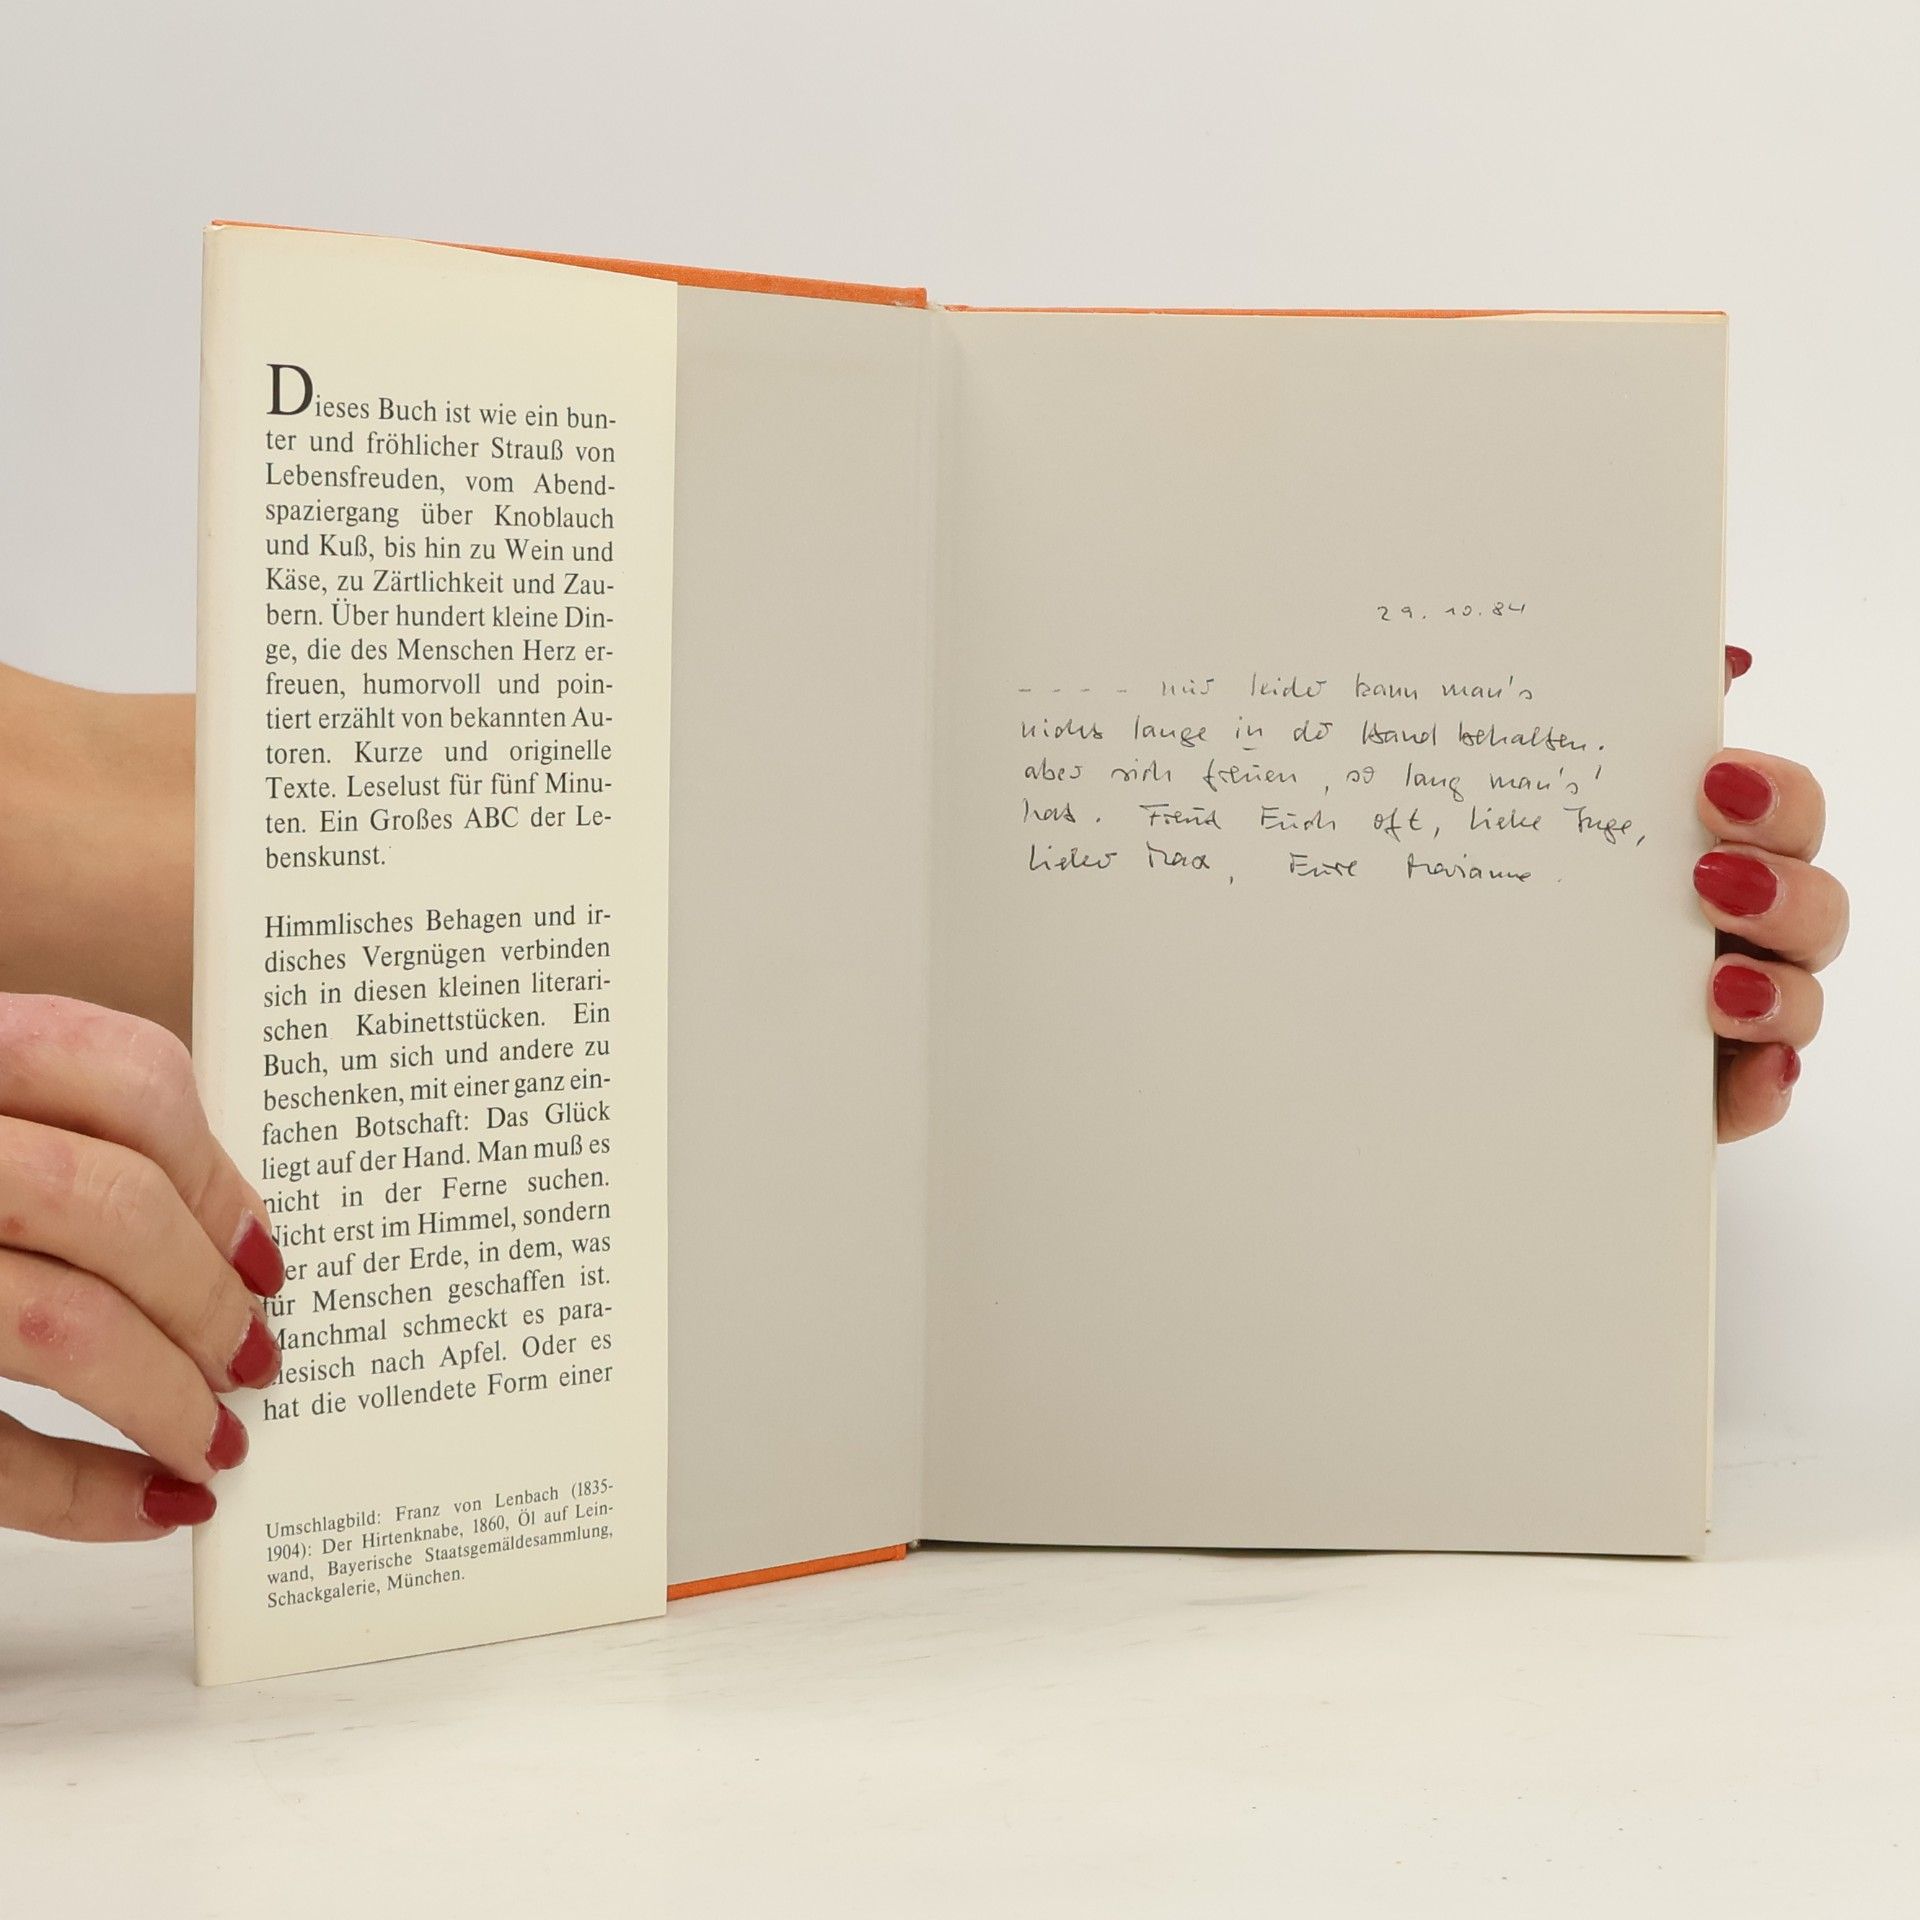 Dieses Buch ist wie ein bun-
ter und fröhlicher Strauß von
Lebensfreuden, vom Abend-
spaziergang über Knoblauch
und Kuß, bis hin zu Wein und
Käse, zu Zärtlichkeit und Zau-
bern. Über hundert kleine Din-
ge, die des Menschen Herz er-
freuen, humorvoll und poin-
tiert erzählt von bekannten Au-
toren. Kurze und originelle
Texte. Leselust für fünf Minu-
ten. Ein Großes ABC der Le-
benskunst.
Himmlisches Behagen und ir-
disches Vergnügen verbinden
sich in diesen kleinen literari-
schen Kabinettstücken. Ein
Buch, um sich und andere zu
beschenken, mit einer ganz ein-
fachen Botschaft: Das Glück
liegt auf der Hand. Man muß es
nicht in der Ferne suchen.
Nicht erst im Himmel, sondern
er auf der Erde, in dem, was
für Menschen geschaffen ist.
Manchmal schmeckt es para-
iesisch nach Apfel. Oder es
hat die vollendete Form einer
Umschlagbild: Franz von Lenbach (1835-
1904): Der Hirtenknabe, 1860, Öl auf Lein-
wand, Bayerische Staatsgemäldesammlung,
Schackgalerie, München.
29. 10. 84
- - - - nur leider kann man's
nicht lange in der Hand behalten.
aber sich freuen, so lang man's
hat. Freut Euch oft, liebe Inge,
lieber Max, Eure Marianne.